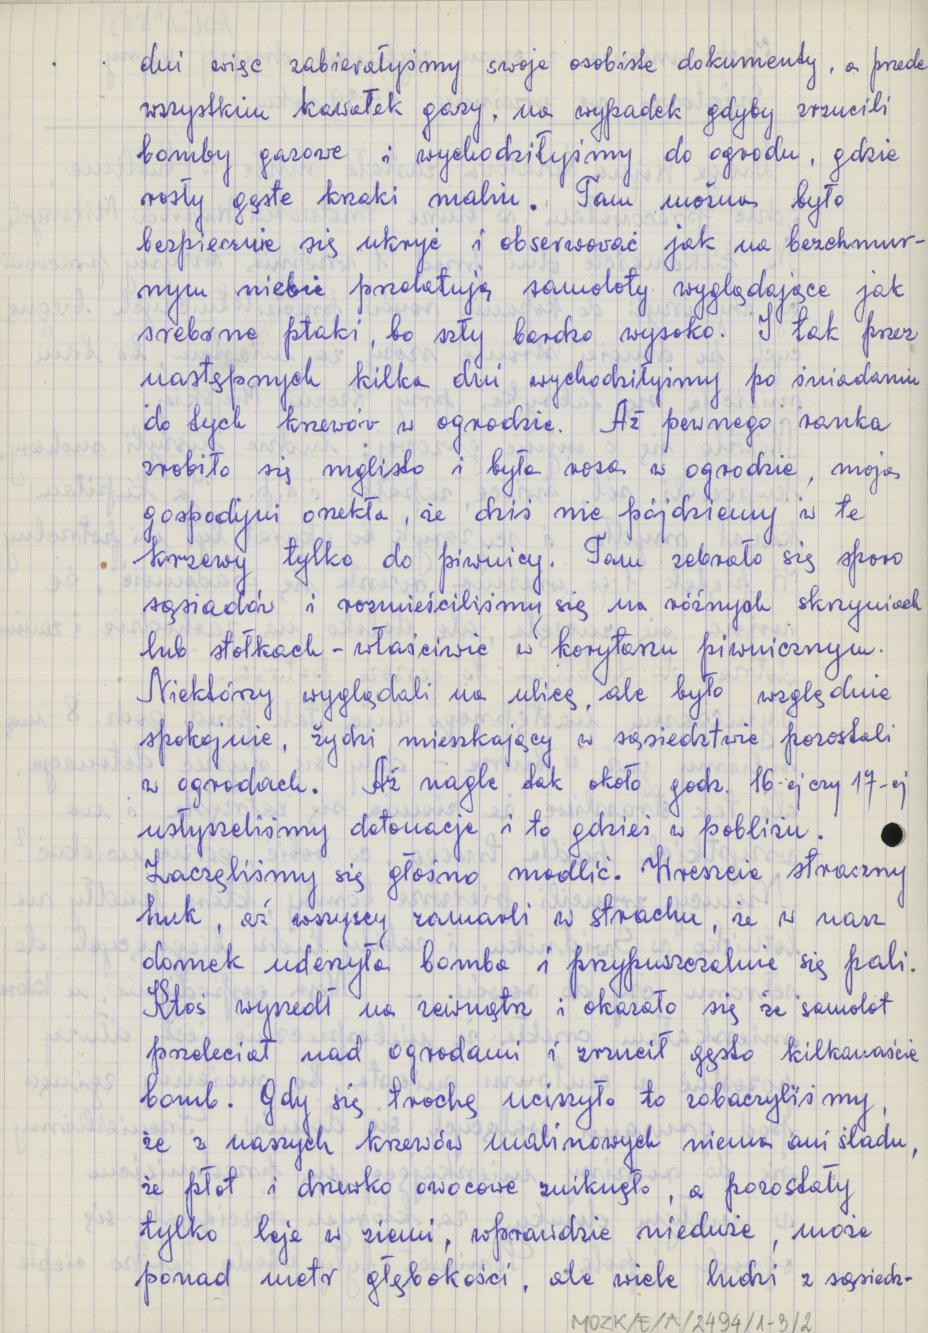 dni więc zabierałyśmy swoje osobiste dokumenty, a przede
wszystkim kawałek gazy, na wypadek gdyby zrzucili
bomby gazowe i wychodziłyśmy do ogrodu, gdzie
rosły gęste krzaki malin. Tam można było
bezpiecznie się ukryć i obserwować jak na bezchmur-
nym niebie przelatują samoloty wyglądające jak
srebrne ptaki, bo szły bardzo wysoko. I tak przez
następnych kilka dni wychodziłyśmy po śniadaniu
do tych krzewów w ogrodzie. Aż pewnego ranka
zrobiło się mglisto i była rosa w ogrodzie, moja
gospodyni orzekła, że dziś nie pójdziemy w te
krzewy tylko do piwnicy. Tam zebrało się sporo
sąsiadów i rozmieściliśmy się na różnych skrzyniach
lub stołkach - właściwie w korytarzu piwnicznym.
Niektórzy wyglądali na ulicę, ale było względnie
spokojnie, żydzi mieszkający w sąsiedztwie pozostali
w ogrodach. Aż nagle tak około godz. 16-ej czy 17-ej
usłyszeliśmy detonacje i to gdzieś w pobliżu.
Zaczęliśmy się głośno modlić. Wreszcie straszny
huk, aż wszyscy zamarli w strachu, że w nasz
domek uderzyła bomba i przypuszczalnie się pali.
Ktoś wyszedł na zewnątrz i okazało się że samolot
przeleciał nad ogrodami i zrzucił gęsto kilkanaście
bomb. Gdy się trochę uciszyło to zobaczyliśmy,
że z naszych krzewów malinowych niema ani śladu,
że płot i drzewko owocowe zniknęło, a pozostały
tylko leje w ziemi, wprawdzie nieduże, może
ponad metr głębokości, ale wiele ludzi z sąsiedz-
MOZK/Æ/A/2494/1-3/2